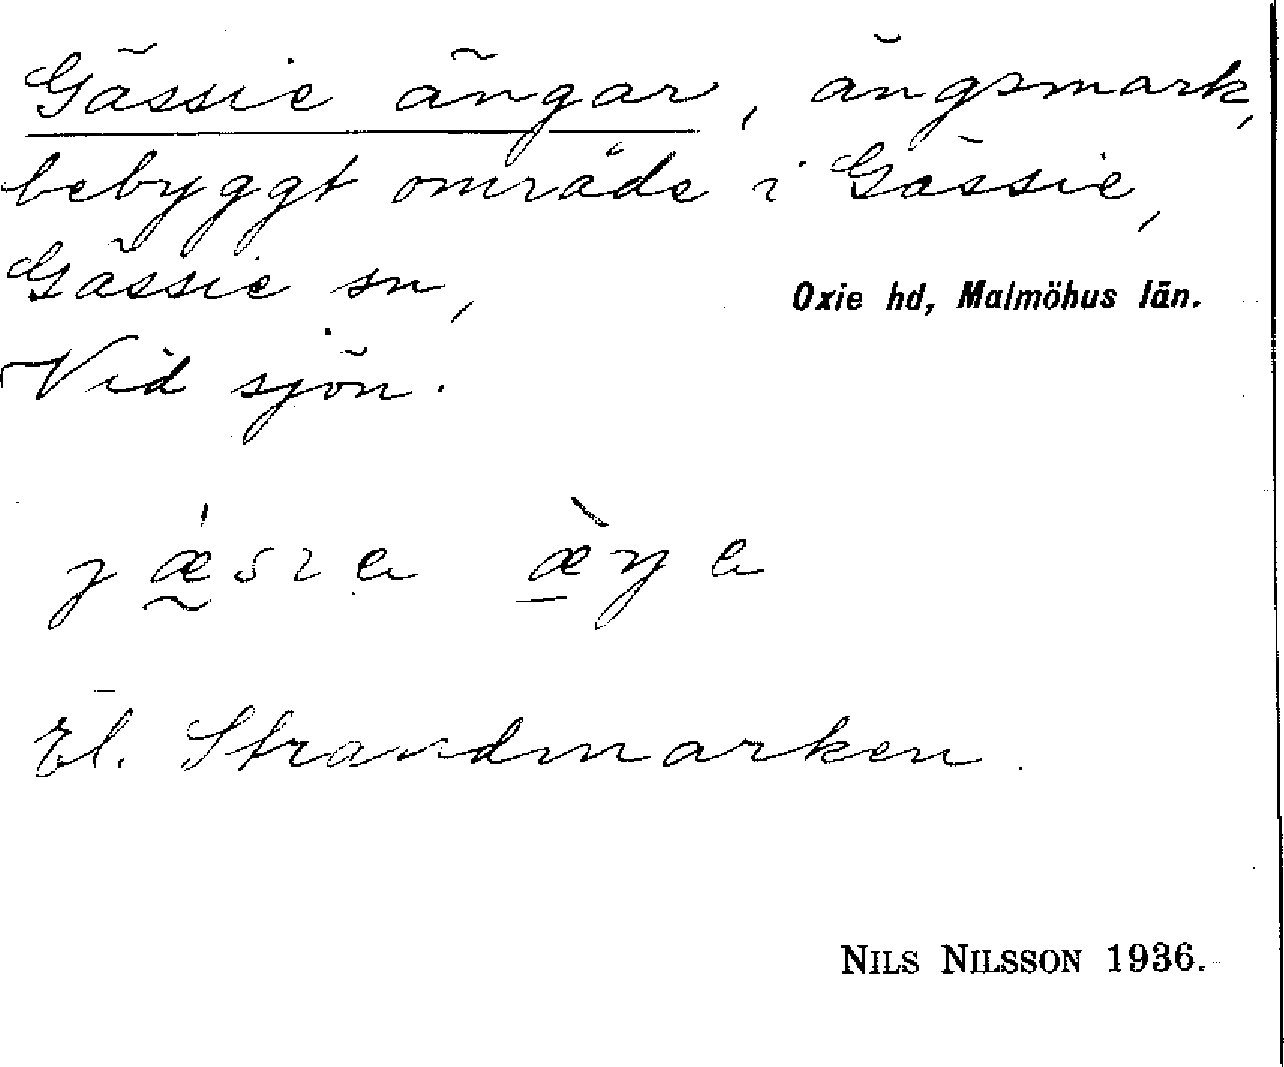 Gässie ängar, ängsmark,
bebyggt område i Gässie,
Gässie sn, Oxie hd, Malmöhus län.
Vid sjön.
El. Strandmarken.
NILS NILSSON 1936.